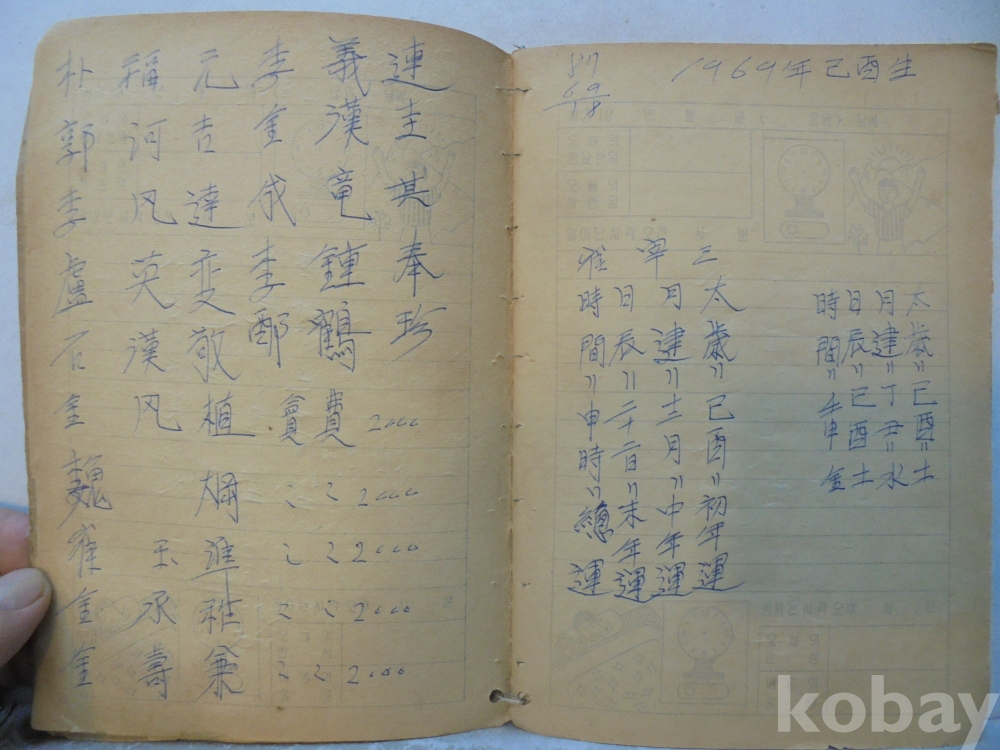 朴 稱 元 李 義 連
郭 河 吉 金 漢 圭
李 凡 達 成 竜 其
盧 英 変 李 鍾 奉
石 漢 敬 鄭 鶴 珍
金 凡 植 會 費 2000
魏 〃 〃 2000
崔 玉 準 〃 〃 2000
金 承 雅 〃 〃 2000
金 壽 兼 〃 〃 2000
87
69
18
1969年己酉生
太歲〃己酉〃土
月建〃丁丑〃水
日辰〃己酉 土
時間〃壬申 金
崔 寧 三
太歲〃己酉〃初年運
月建〃十二月〃中年運
日辰〃二十二日〃末年運
時間〃申時〃總運
kobay